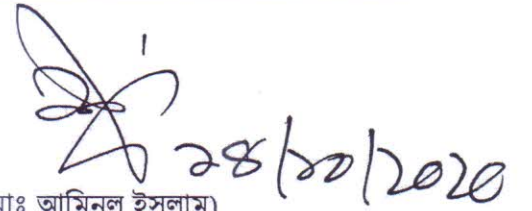 ২৪/১০/২০২০
মোঃ আমিনুল ইসলাম)